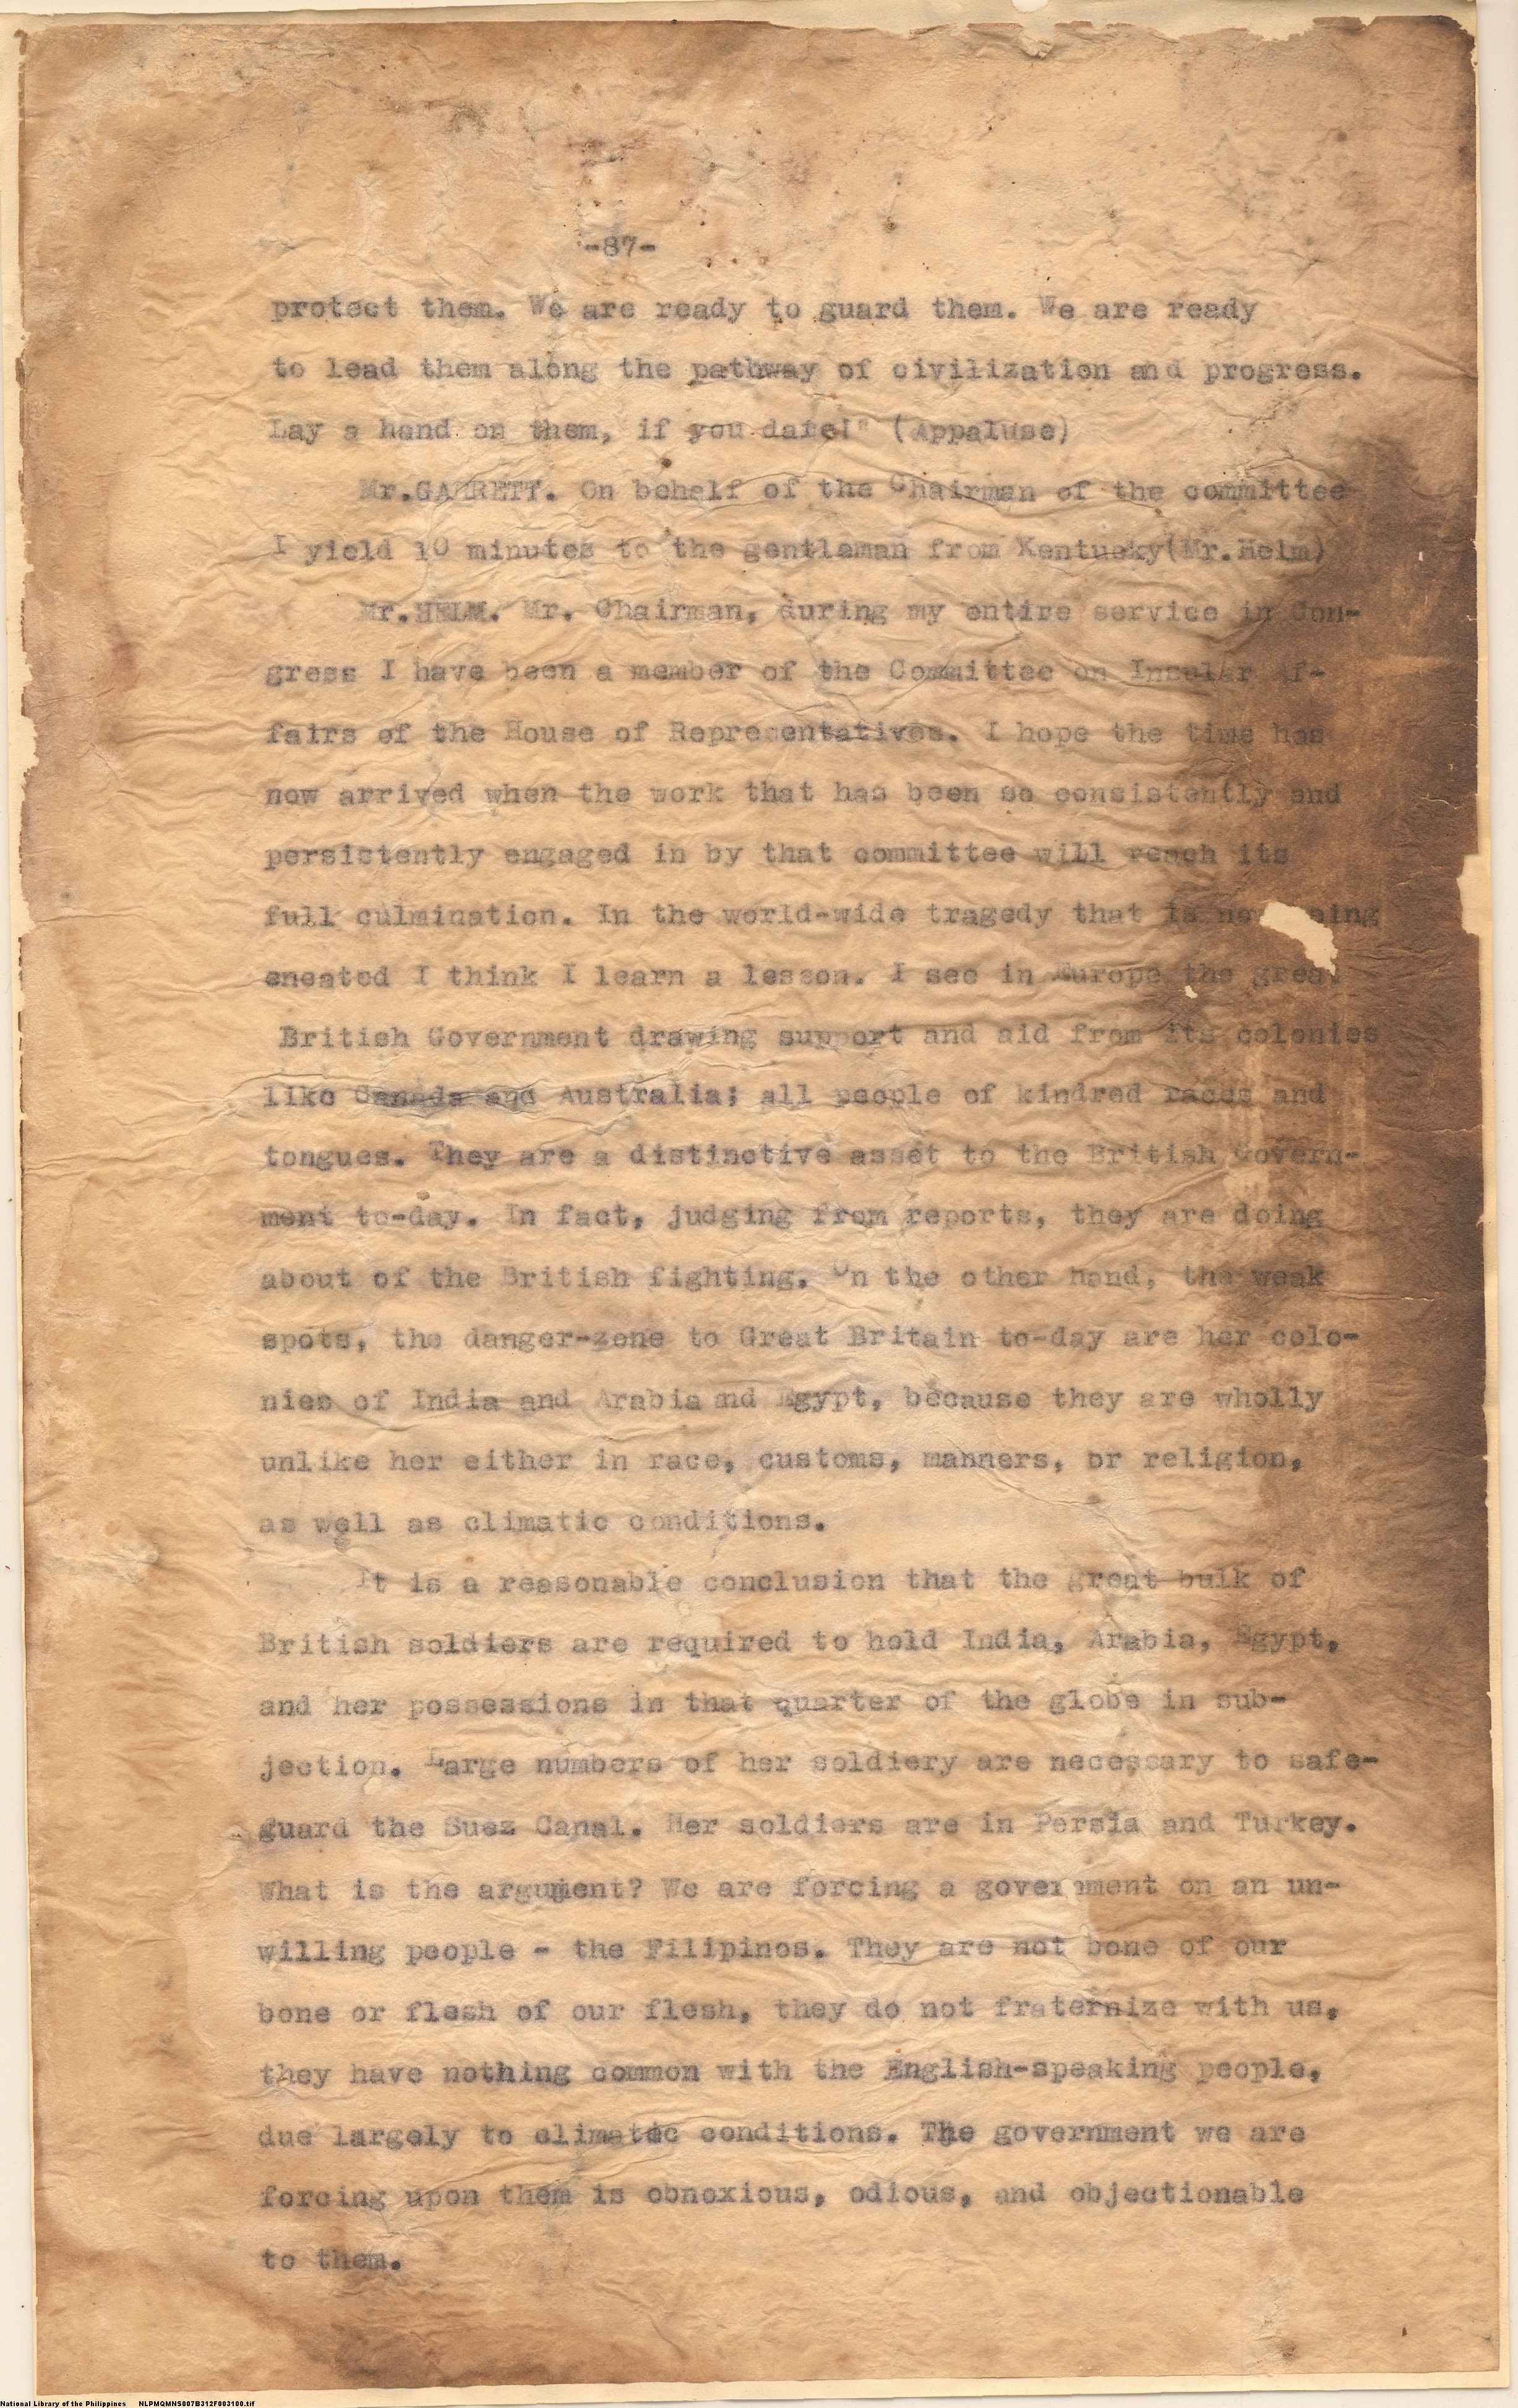 -87-
protect them. We are ready to guard them. We are ready
to lead them along the pathway of civilization and progress.
Lay a hand on them, if you dare!" (Appaluse)
Mr.GARRETT. On behalf of the Chairman of the committee
I yield 10 minutes to the gentleman from Kentucky(Mr.Helm)
Mr.HELM. Mr. Chairman, during my entire service in Con-
gress I have been a member of the Committee on Insular Af-
fairs of the House of Representatives. I hope the time has
now arrived when the work that has been so consistently and
persistently engaged in by that committee will reach its
full culmination. In the world-wide tragedy that is
eneated I think I learn a lesson. I see in Europe the great
British Government drawing support and aid from its colonies
like Canada and Australia; all people of kindred races and
tongues. They are a distinctive asset to the British Govern-
ment to-day. In fact, judging from reports, they are doing
about of the British fighting. On the other hand, the weak
spots, the danger-zone to Great Britain to-day are her colo-
nies of India and Arabia and Egypt, because they are wholly
unlike her either in race, customs, manners, or religion,
as well as climatic conditions.
It is a reasonable conclusion that the great bulk of
British soldiers are required to hold India, Arabia, Egypt,
and her possessions in that quarter of the globe in sub-
jection. Large numbers of her soldiery are necessary to safe-
guard the Suez Canal. Her soldiers are in Persia and Turkey.
What is the argument? We are forcing a government on an un-
willing people - the Filipinos. They are not bone of our
bone or flesh of our flesh, they do not fraternize with us,
they have nothing common with the English-speaking people,
due largely to climatic conditions. The government we are
forcing upon them is obnoxious, odious, and objectionable
to them.
National Library of the Philippines NLPMQMNS007B312F003100.tif